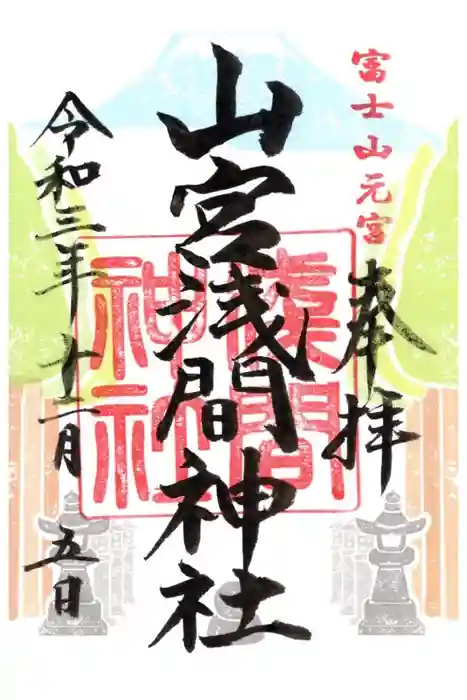 富士山元宮
奉拝
山宮浅間神社
淺間
神社
令和三年十二月
五日